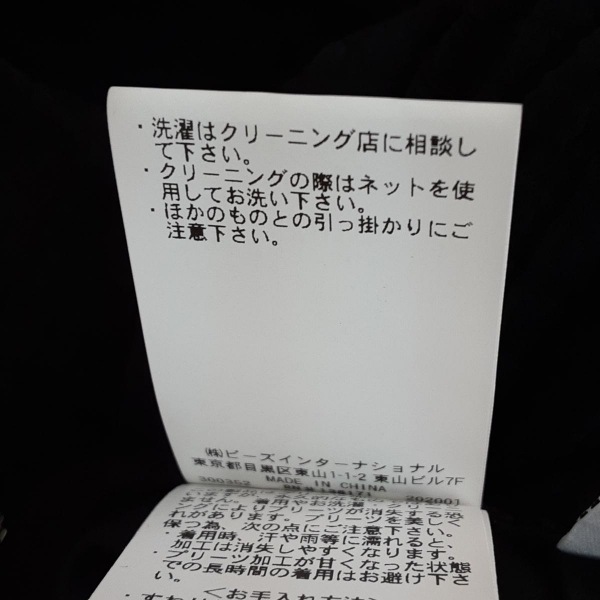 ・洗濯はクリーニング店に相談し
て下さい。
・クリーニングの際はネットを使
用してお洗い下さい。
・ほかのものとの引っ掛かりにご
注意下さい。
㈱ビーズインターナショナル
東京都目黒区東山1-1-2 東山ビル7F
300352 MADE IN CHINA 202001
ません。着用やお洗濯
によりプリーツが消失する恐
れがあります。プリーツを美しく
保つ為、次の点にご注意下さい。
・着用時、汗や雨等に濡れると、
加工は消失しやすくなります。
・プリーツ加工が甘くなった状態
での長時間の着用はお避け下さ
い。
＜お手入れ方法＞